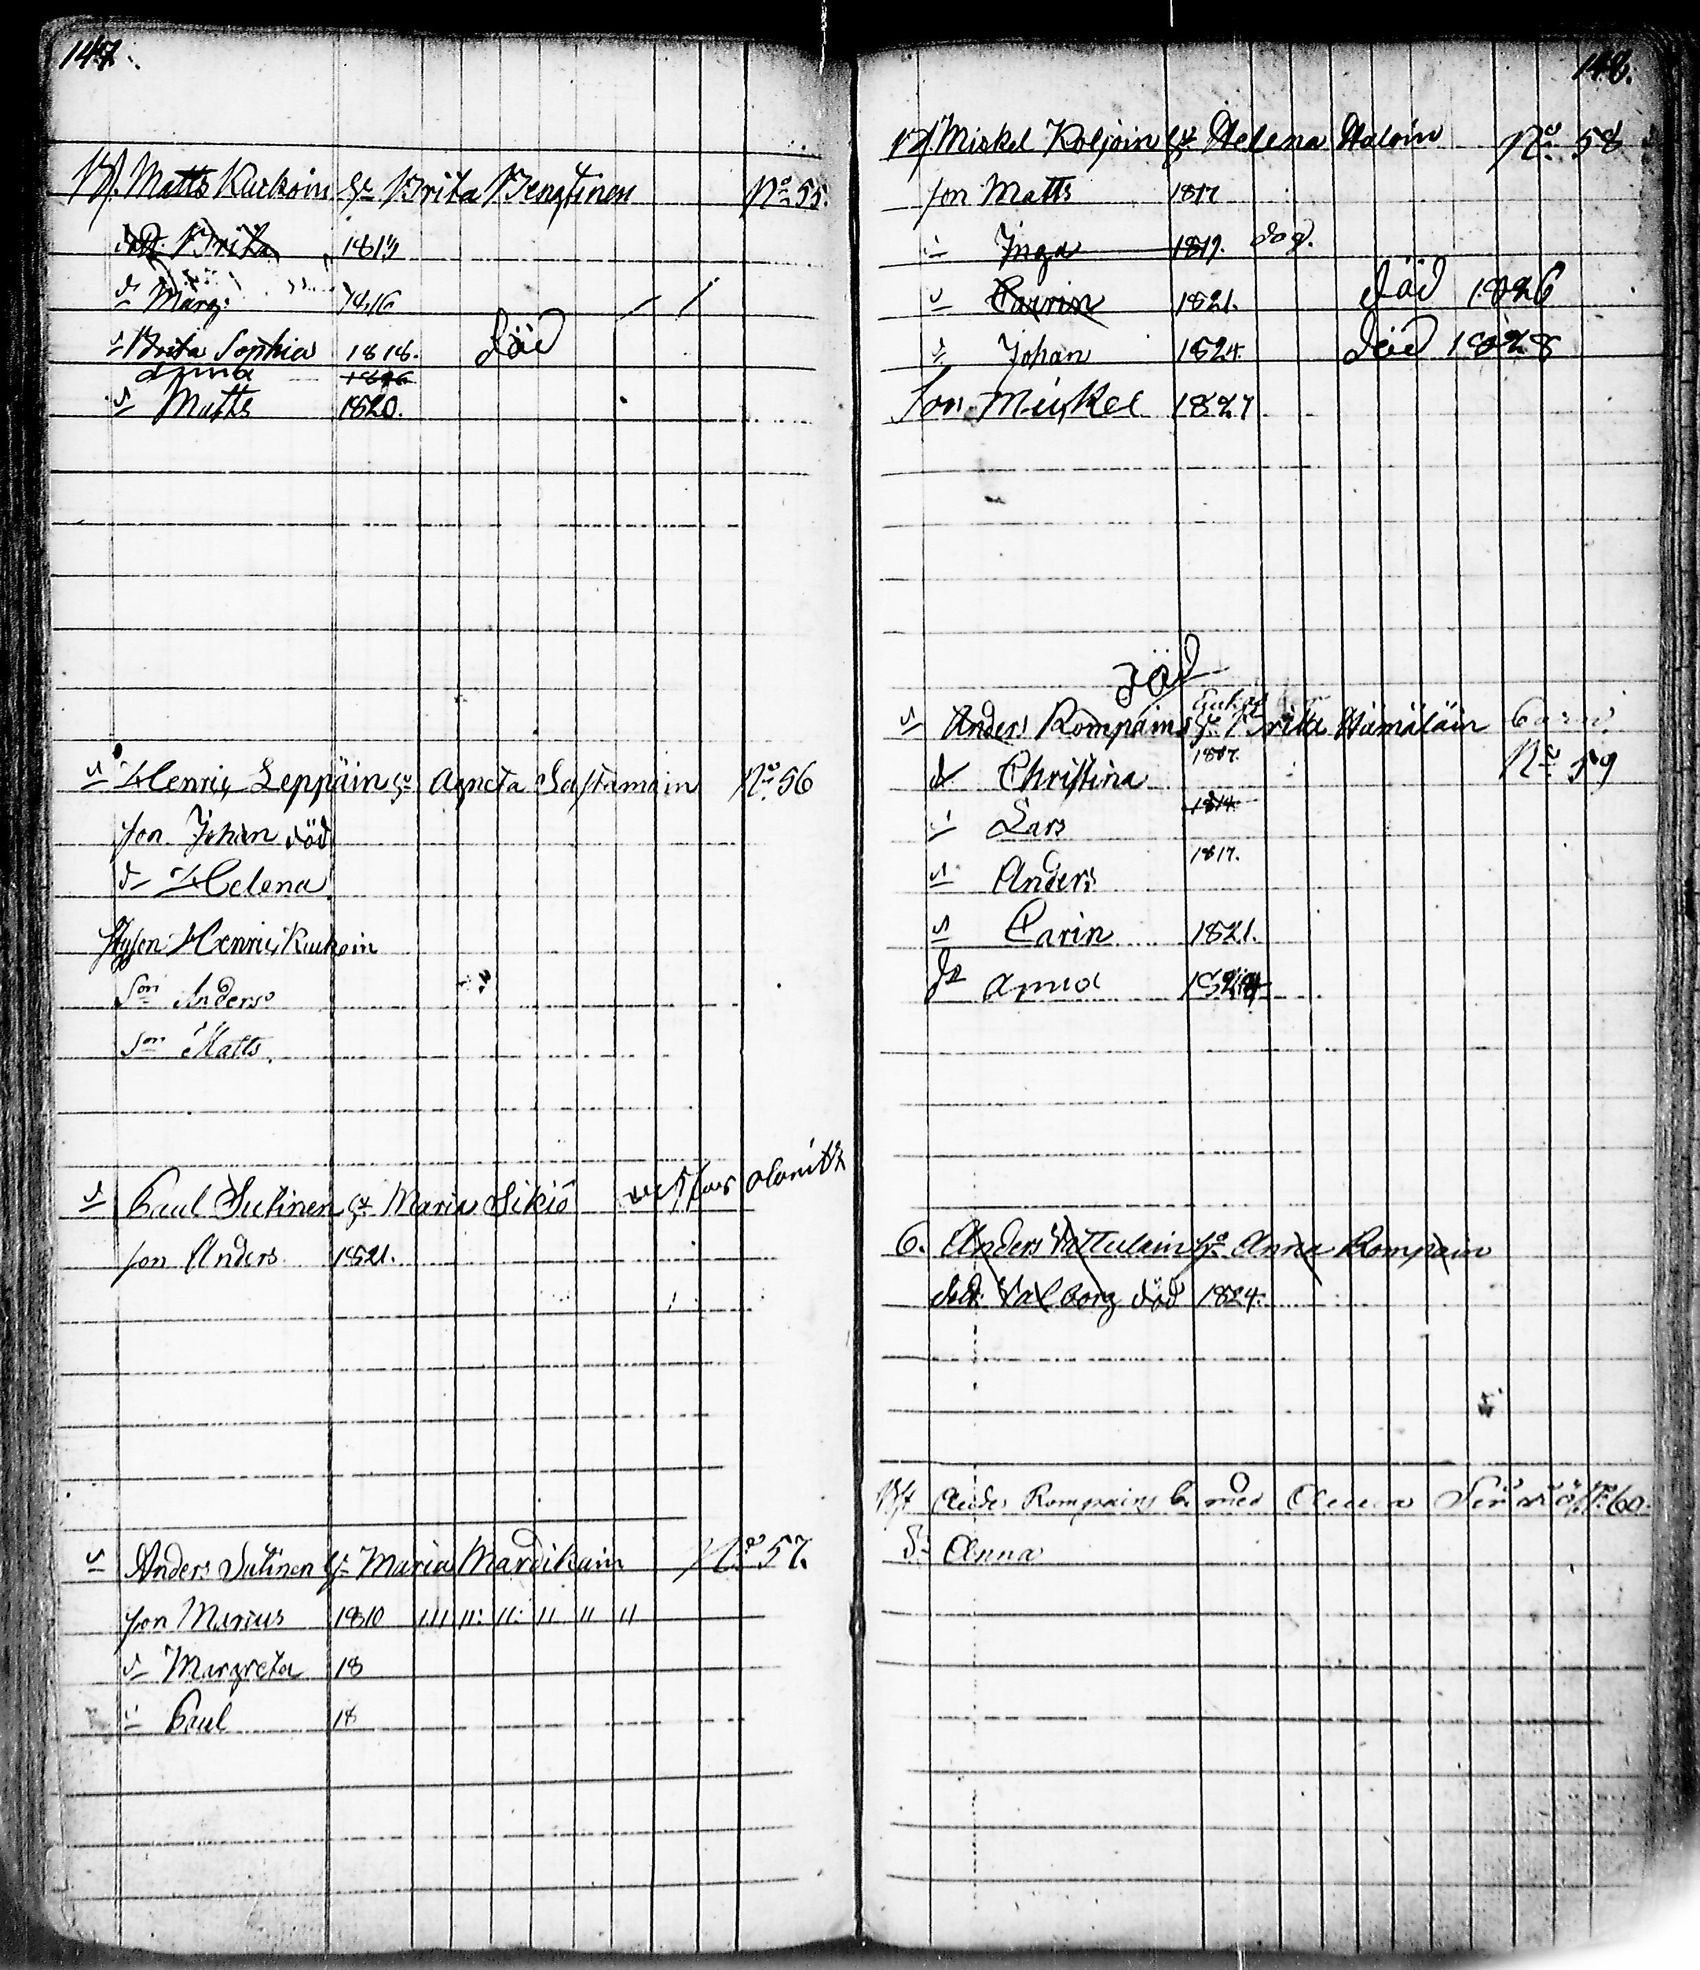 147.
Bf. Matts Kuckoin h: Brita Bengtinen No 55.
dott. Brita 1813
d: Marg: 1816
d: Brita Sophia 1818. död
Anna 1826
s: Matts 1820.
s: Henric Leppäin h: Agneta Sastamoin No 56
son Johan död
d: Helena
Stysson Henric Kuckoin
Son Anders
Son Matts
s: Paul Sutinen h: Maria Sikiö
son Anders 1821.
s: Anders Sutinen h: Maria Mardikain No 57.
son Marcus 1810
d: Margreta 18
s: Paul 18
148.
Bf. Mickel Koljoin h: Helena Haloin No 58
son Matts 1817
d: Inga 1819.
d: Carin 1821. död 1826
s: Johan 1824. död 1828
Son Mickel 1827
död
s: Anders Rompains h: Brita Hämäläin
d: Christina 1807. No 59
s: Lars 1814.
s: Anders 1817.
d: Carin 1821.
dr Anna 1824
6. Anders Vattulain h: Anna Rompain
dott: Valborg död 1824.
Bf. Anders Rompains b. med No 60.
d: Anna